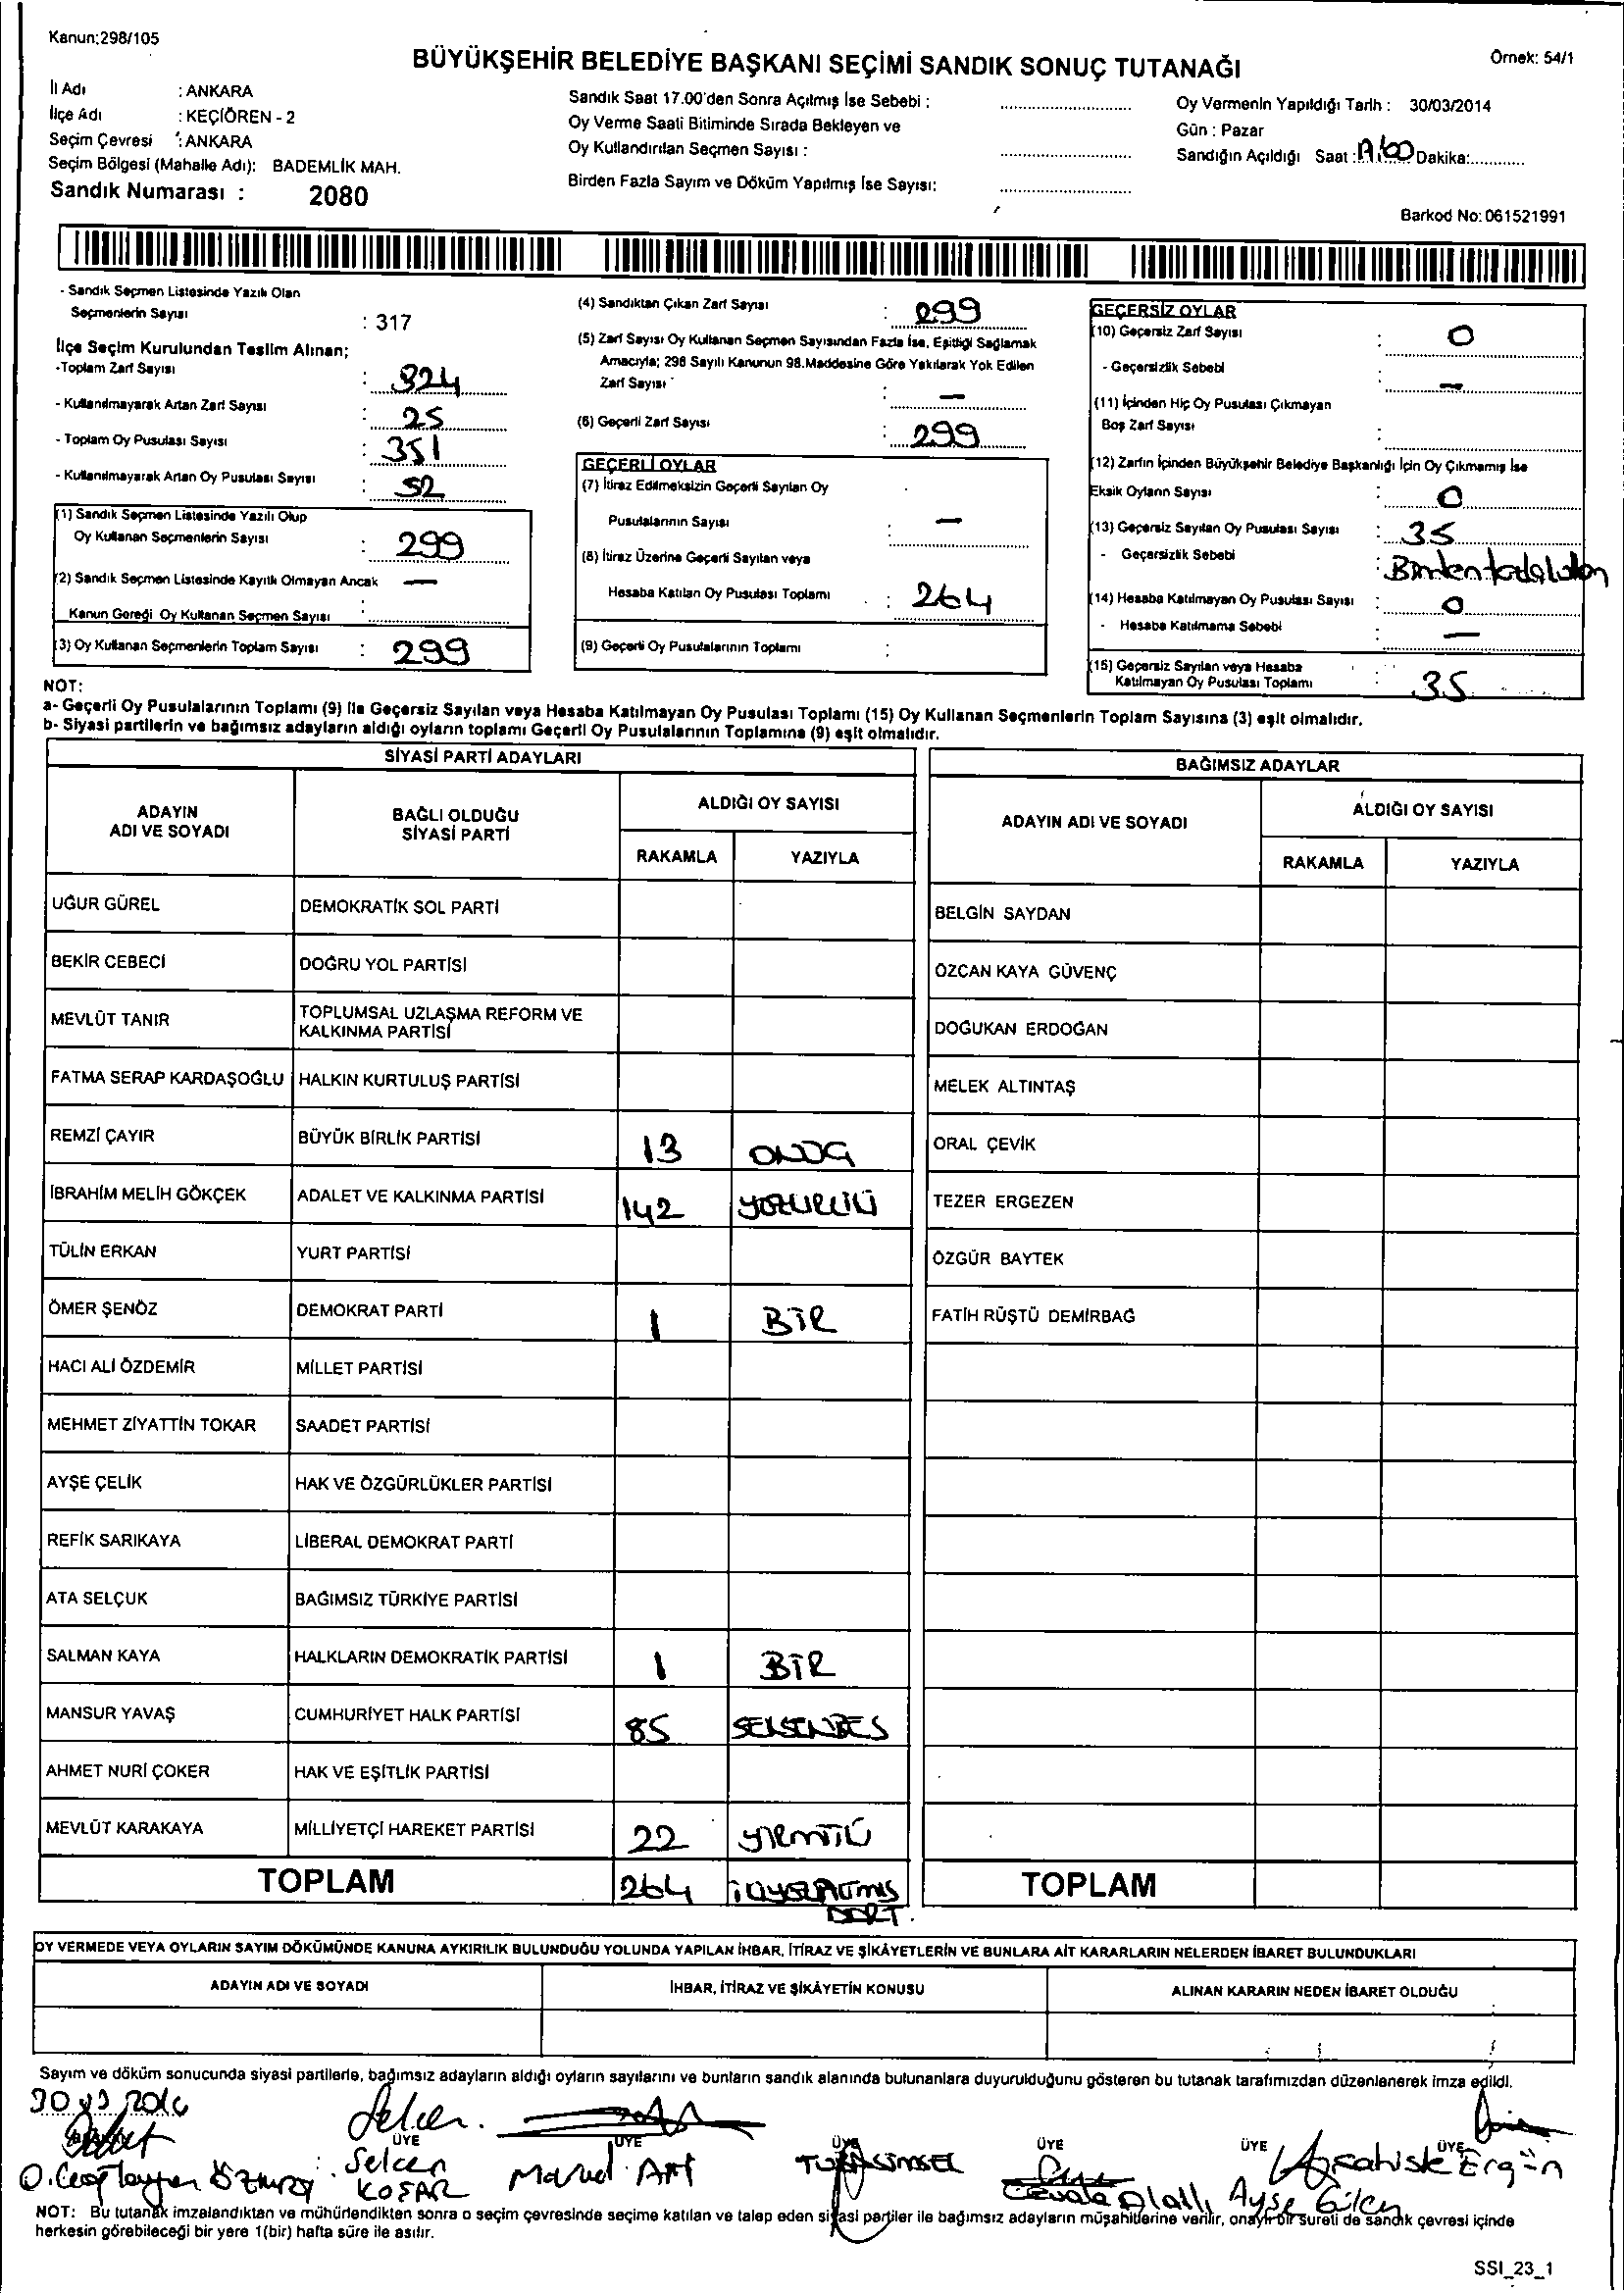 Kanun:298/105
BÜYÜKŞEHİR BELEDİYE BAŞKANI SEÇİMİ SANDIK SONUÇ TUTANAĞI
Örnek: 54/1
İl Adı : ANKARA
İlçe Adı : KEÇİÖREN - 2
Seçim Çevresi : ANKARA
Seçim Bölgesi (Mahalle Adı): BADEMLİK MAH.
Sandık Numarası : 2080
Sandık Saat 17.00'den Sonra Açılmış İse Sebebi :
Oy Verme Saati Bitiminde Sırada Bekleyen ve
Oy Kullandırılan Seçmen Sayısı :
Birden Fazla Sayım ve Döküm Yapılmış İse Sayısı:
Oy Vermenin Yapıldığı Tarih : 30/03/2014
Gün : Pazar
Sandığın Açıldığı Saat : Dakika:
Barkod No: 061521991
- Sandık Seçmen Listesinde Yazılı Olan
Seçmenlerin Sayısı : 317
İlçe Seçim Kurulundan Teslim Alınan;
-Toplam Zarf Sayısı : 324
- Kullanılmayarak Artan Zarf Sayısı : 25
- Toplam Oy Pusulası Sayısı : 351
- Kullanılmayarak Artan Oy Pusulası Sayısı : 52
(1) Sandık Seçmen Listesinde Yazılı Olup
Oy Kullanan Seçmenlerin Sayısı : 299
(2) Sandık Seçmen Listesinde Kayıtlı Olmayan Ancak —
Kanun Gereği Oy Kullanan Seçmen Sayısı :
(3) Oy Kullanan Seçmenlerin Toplam Sayısı : 299
(4) Sandıktan Çıkan Zarf Sayısı : 299
(5) Zarf Sayısı Oy Kullanan Seçmen Sayısından Fazla İse, Eşitliği Sağlamak
Amacıyla; 298 Sayılı Kanunun 98.Maddesine Göre Yakılarak Yok Edilen
Zarf Sayısı : —
(6) Geçerli Zarf Sayısı : 299
GEÇERLİ OYLAR
(7) İtiraz Edilmeksizin Geçerli Sayılan Oy
Pusulalarının Sayısı : —
(8) İtiraz Üzerine Geçerli Sayılan veya
Hesaba Katılan Oy Pusulası Toplamı : 264
(9) Geçerli Oy Pusulalarının Toplamı :
GEÇERSİZ OYLAR
(10) Geçersiz Zarf Sayısı : 0
- Geçersizlik Sebebi : —
(11) İçinden Hiç Oy Pusulası Çıkmayan
Boş Zarf Sayısı :
(12) Zarfın İçinden Büyükşehir Belediye Başkanlığı İçin Oy Çıkmamış İse
Eksik Oyların Sayısı : 0
(13) Geçersiz Sayılan Oy Pusulası Sayısı : 35
- Geçersizlik Sebebi :
(14) Hesaba Katılmayan Oy Pusulası Sayısı : 0
- Hesaba Katılmama Sebebi : —
(15) Geçersiz Sayılan veya Hesaba
Katılmayan Oy Pusulası Toplamı : 35
NOT:
a- Geçerli Oy Pusulalarının Toplamı (9) İle Geçersiz Sayılan veya Hesaba Katılmayan Oy Pusulası Toplamı (15) Oy Kullanan Seçmenlerin Toplam Sayısına (3) eşit olmalıdır.
b- Siyasi partilerin ve bağımsız adayların aldığı oyların toplamı Geçerli Oy Pusulalarının Toplamına (9) eşit olmalıdır.
SİYASİ PARTİ ADAYLARI
ADAYIN ADI VE SOYADI
BAĞLI OLDUĞU SİYASİ PARTİ
ALDIĞI OY SAYISI
RAKAMLA YAZIYLA
UĞUR GÜREL DEMOKRATİK SOL PARTİ
BEKİR CEBECİ DOĞRU YOL PARTİSİ
MEVLÜT TANIR TOPLUMSAL UZLAŞMA REFORM VE
KALKINMA PARTİSİ
FATMA SERAP KARDAŞOĞLU HALKIN KURTULUŞ PARTİSİ
REMZİ ÇAYIR BÜYÜK BİRLİK PARTİSİ 13
İBRAHİM MELİH GÖKÇEK ADALET VE KALKINMA PARTİSİ 142
TÜLİN ERKAN YURT PARTİSİ
ÖMER ŞENÖZ DEMOKRAT PARTİ 1 BİR
HACI ALİ ÖZDEMİR MİLLET PARTİSİ
MEHMET ZİYATTİN TOKAR SAADET PARTİSİ
AYŞE ÇELİK HAK VE ÖZGÜRLÜKLER PARTİSİ
REFİK SARIKAYA LİBERAL DEMOKRAT PARTİ
ATA SELÇUK BAĞIMSIZ TÜRKİYE PARTİSİ
SALMAN KAYA HALKLARIN DEMOKRATİK PARTİSİ 1 BİR
MANSUR YAVAŞ CUMHURİYET HALK PARTİSİ 85 SEKSENBES
AHMET NURİ ÇOKER HAK VE EŞİTLİK PARTİSİ
MEVLÜT KARAKAYA MİLLİYETÇİ HAREKET PARTİSİ 22
TOPLAM 264
DÖRT
BAĞIMSIZ ADAYLAR
ADAYIN ADI VE SOYADI
ALDIĞI OY SAYISI
RAKAMLA YAZIYLA
BELGİN SAYDAN
ÖZCAN KAYA GÜVENÇ
DOĞUKAN ERDOĞAN
MELEK ALTINTAŞ
ORAL ÇEVİK
TEZER ERGEZEN
ÖZGÜR BAYTEK
FATİH RÜŞTÜ DEMİRBAĞ
TOPLAM
OY VERMEDE VEYA OYLARIN SAYIM DÖKÜMÜNDE KANUNA AYKIRILIK BULUNDUĞU YOLUNDA YAPILAN İHBAR, İTİRAZ VE ŞİKÂYETLERİN VE BUNLARA AİT KARARLARIN NELERDEN İBARET BULUNDUKLARI
ADAYIN ADI VE SOYADI
İHBAR, İTİRAZ VE ŞİKÂYETİN KONUSU
ALINAN KARARIN NEDEN İBARET OLDUĞU
Sayım ve döküm sonucunda siyasi partilerle, bağımsız adayların aldığı oyların sayılarını ve bunların sandık alanında bulunanlara duyurulduğunu gösteren bu tutanak tarafımızdan düzenlenerek imza edildi.
BAŞKAN ÜYE ÜYE ÜYE ÜYE ÜYE ÜYE
Selcen
KOŞAR
NOT: Bu tutanak imzalandıktan ve mühürlendikten sonra o seçim çevresinde seçime katılan ve talep eden siyasi partiler ile bağımsız adayların müşahitlerine verilir, onaylı bir sureti de sandık çevresi içinde
herkesin görebileceği bir yere 1(bir) hafta süre ile asılır.
SSI_23_1